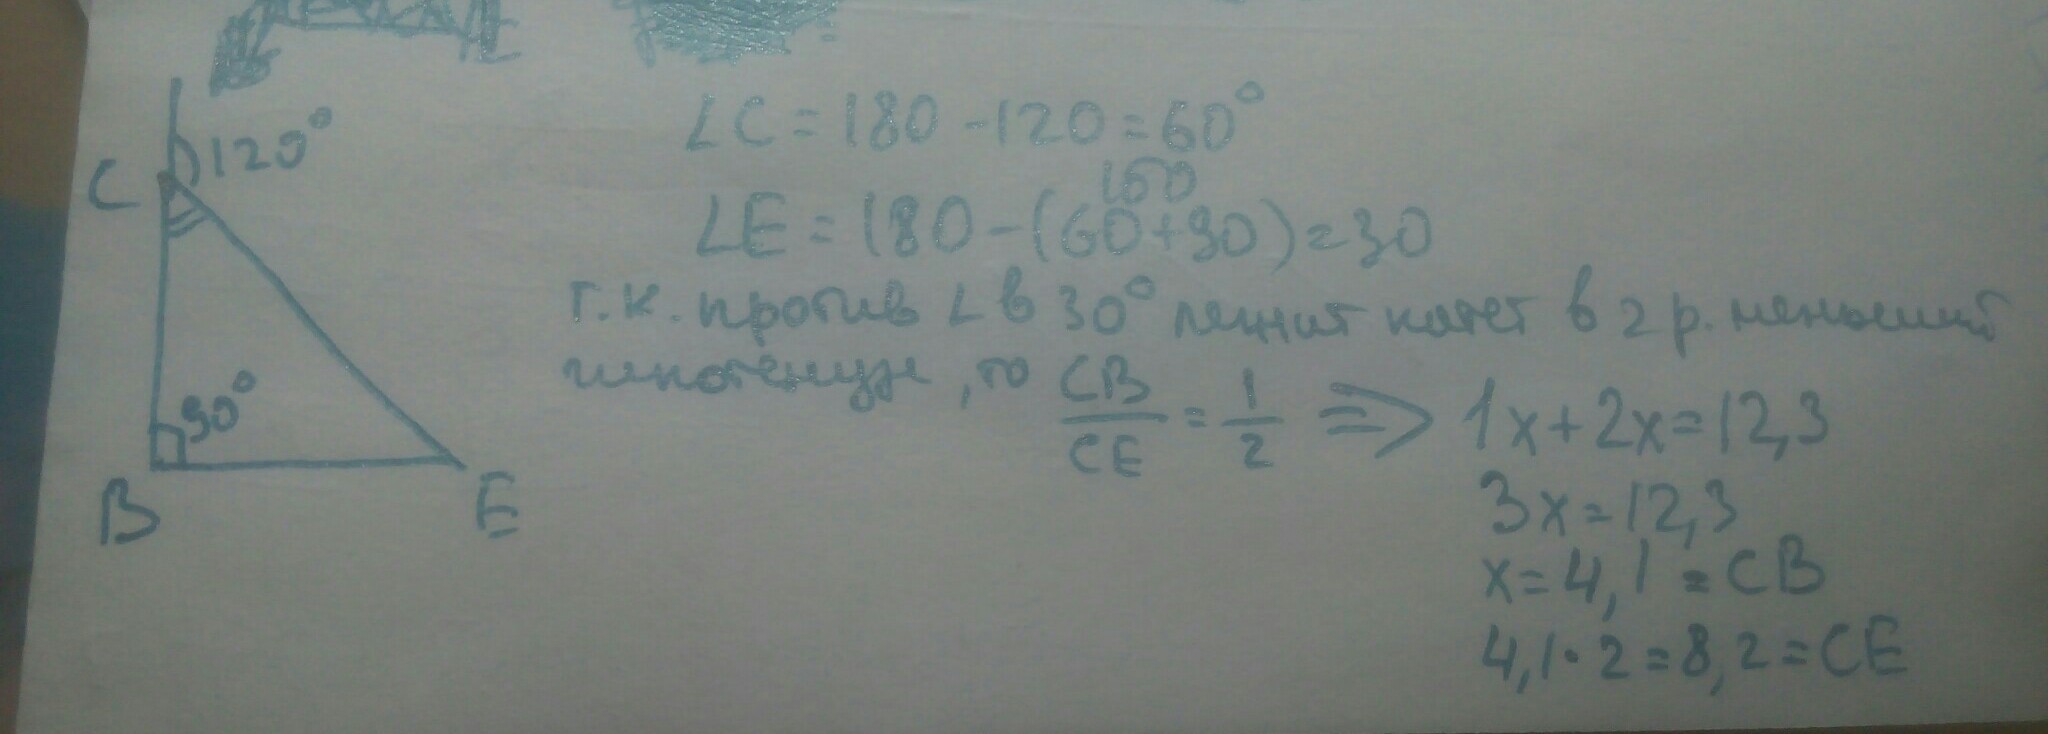 C 120°
90°
B E
∠C = 180 - 120 = 60°
150
∠E = 180 - (60 + 90) = 30
т.к. против ∠ в 30° лежит катет в 2 р. меньший
гипотенузы, то CB/CE = 1/2 ⇒ 1x + 2x = 12,3
3x = 12,3
x = 4,1 = CB
4,1 · 2 = 8,2 = CE